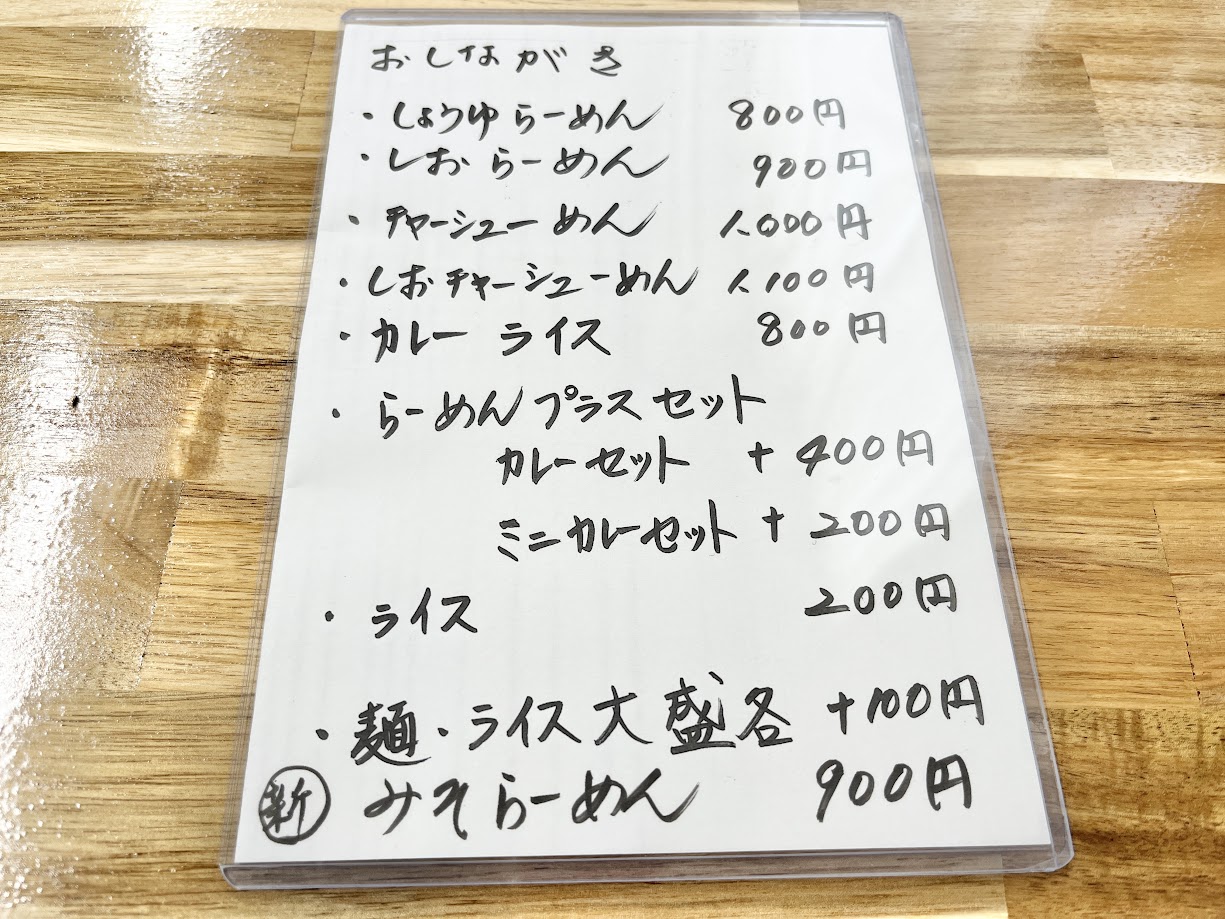 おしながき
・しょうゆらーめん 800円
・しおらーめん 900円
・チャーシューめん 1,000円
・しおチャーシューめん 1,100円
・カレーライス 800円
・らーめんプラスセット
カレーセット +400円
ミニカレーセット +200円
・ライス 200円
・麺・ライス大盛各 +100円
新 みそらーめん 900円